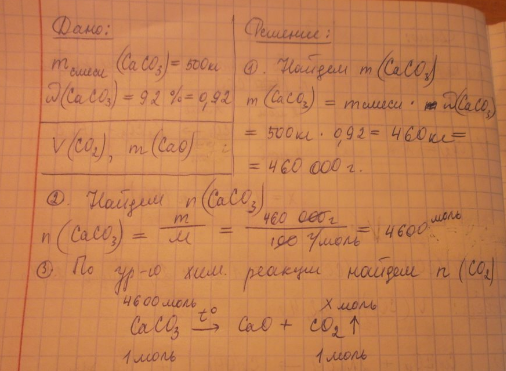 Дано:
m смеси (CaCO₃) = 500кг
ω(CaCO₃) = 92 % = 0,92
V(CO₂), m(CaO)
Решение:
①. Найдем m(CaCO₃)
m(CaCO₃) = m смеси · ω(CaCO₃)
= 500кг · 0,92 = 460кг =
= 460 000 г.
②. Найдем n(CaCO₃)
n(CaCO₃) = m/M = 460 000г/100 г/моль = 4600 моль
③ По ур-ю хим. реакции найдем n(CO₂)
4600 моль x моль
CaCO₃ t° → CaO + CO₂ ↑
1 моль 1 моль